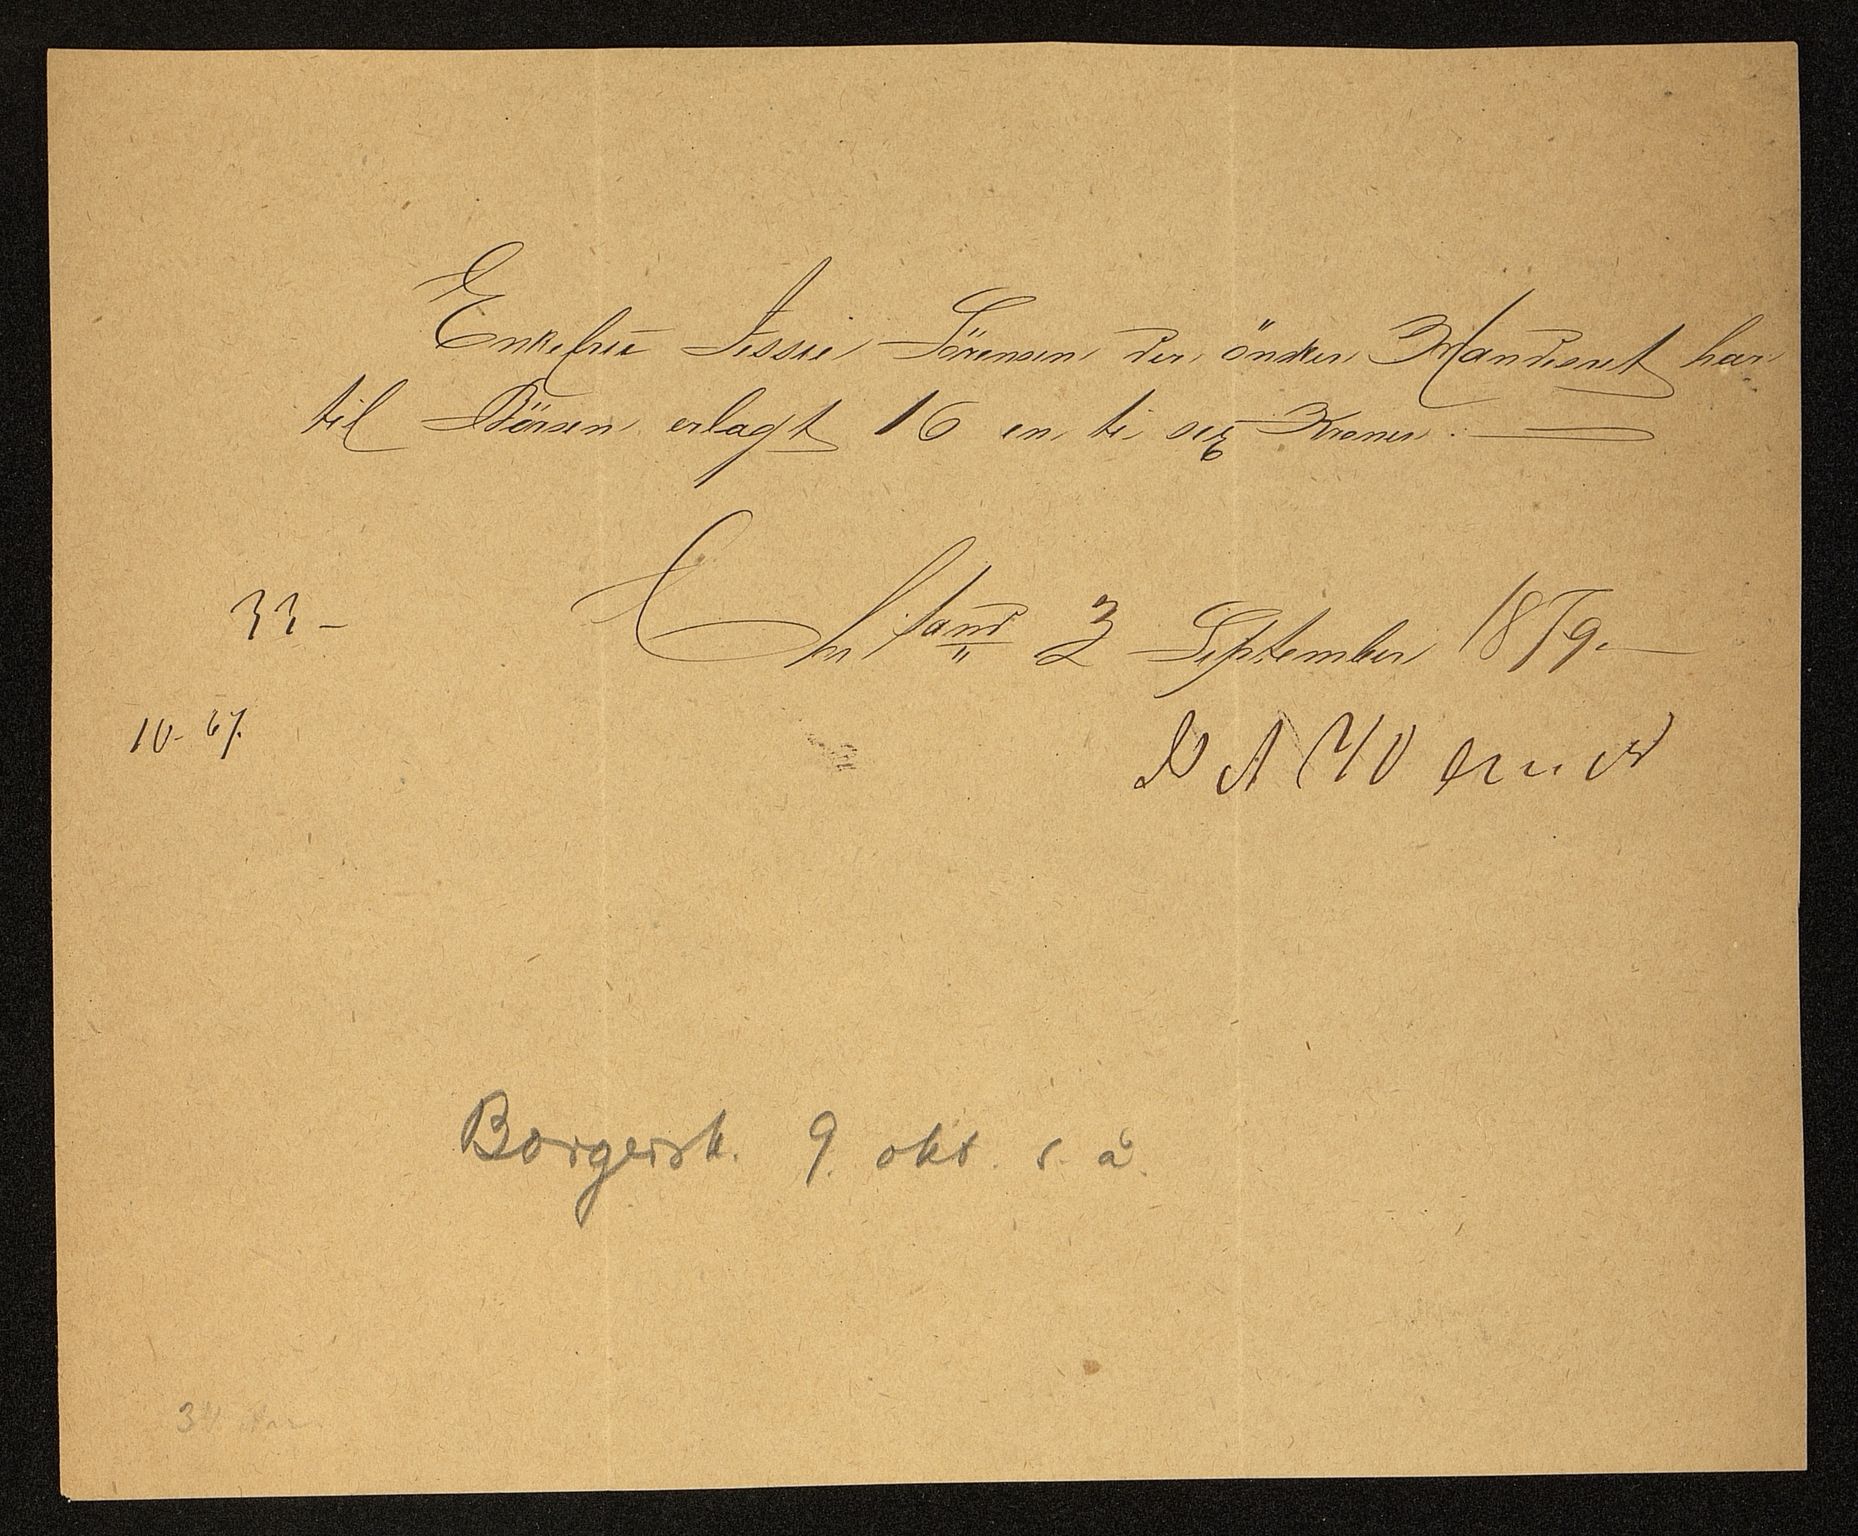 Enkefru Jessie Sörensen der önsker Handelsret har
til Börsen erlagt 16 en ti sex Kroner.
33 -
Chr.sand 3 September 1879.
10-67.
Borgersk. 9. okt. s. å.